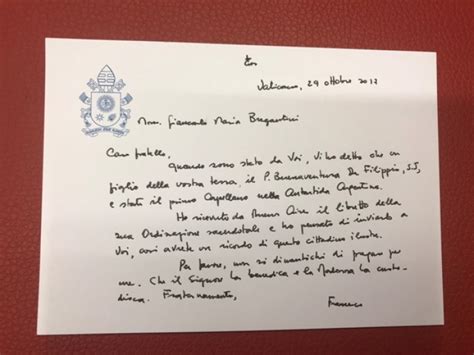 Vaticano, 29 ottobre 2017
Mons. Giancarlo Maria Bregantini
Caro fratello,
Quando sono stato da Voi, Vi ho detto che un
figlio della vostra terra, il P. Buenaventura De Filippis, S.J.
è stato il primo Cappellano nella Antartida Argentina.
Ho ricevuto da Buenos Aires il libretto della
sua Ordinazione sacerdotale e ho pensato di inviarlo a
Voi, così avrete un ricordo di questo cittadino illustre.
Per favore, non si dimentichi di pregare per
me. Che il Signore La benedica e la Madonna La custo-
disca. Fraternamente,
Francesco